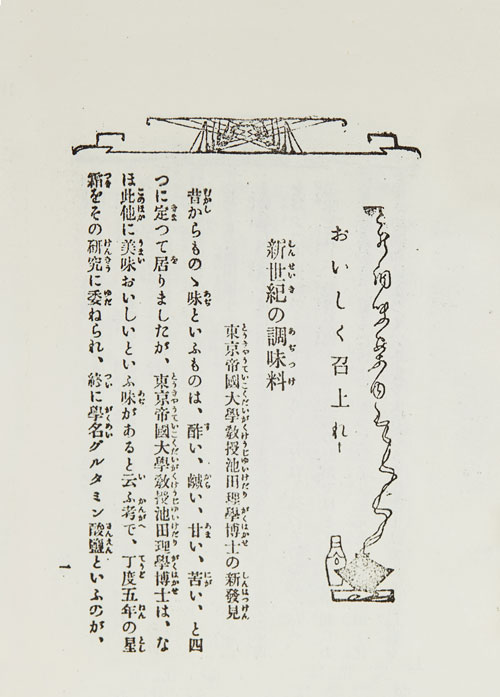 おいしく召上れー
新世紀の調味料
東京帝國大學敎授池田理學博士の新發見
昔からものゝ味といふものは、酢い、鹹い、甘い、苦い、と四
つに定つて居りましたが、東京帝國大學敎授池田理學博士は、な
ほ此他に美味おいしいといふ味があると云ふ考で、丁度五年の星
霜をその硏究に委ねられ、終に學名グルタミン酸鹽といふのが、
一